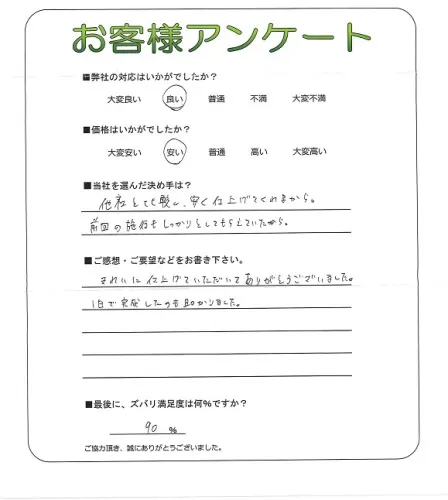 お客様アンケート
■弊社の対応はいかがでしたか?
大変良い 良い 普通 不満 大変不満
■価格はいかがでしたか?
大変安い 安い 普通 高い 大変高い
■当社を選んだ決め手は?
他社とても 安く仕上げてくれるから。
前回の施行もしっかりとしてもらえていたから。
■ご感想・ご要望などをお書き下さい。
きれいに仕上げていただいてありがとうございました。
1日で完成したのも助かりました。
■最後に、ズバリ満足度は何%ですか?
90 %
ご協力頂き、誠にありがとうございました。